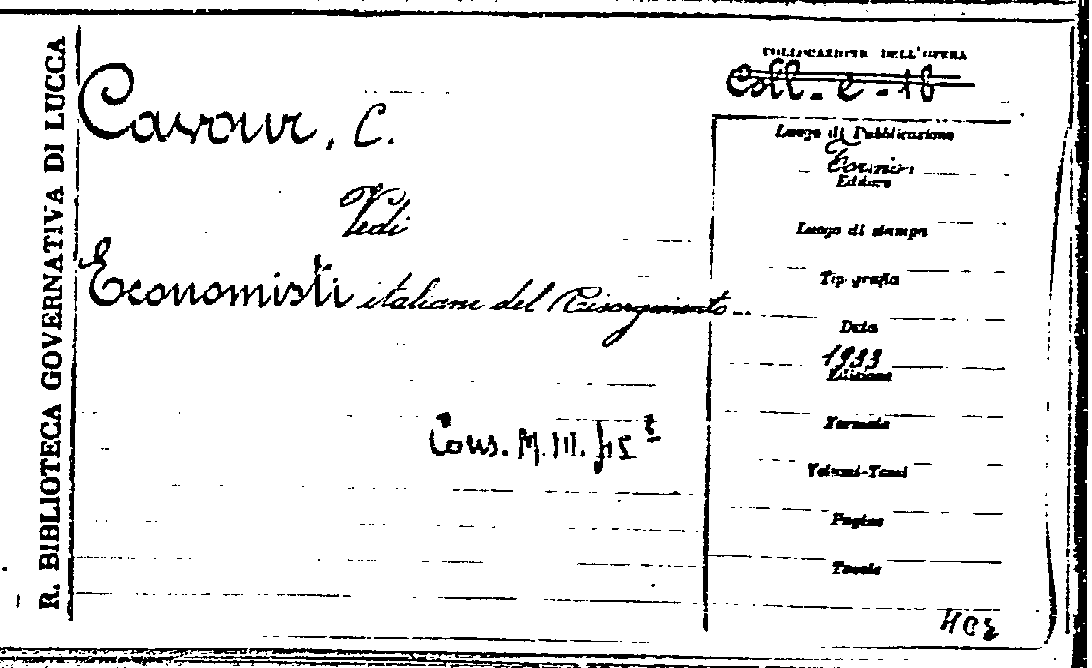 R. BIBLIOTECA GOVERNATIVA DI LUCCA
Cavour, C.
Vedi
Economisti italiani del Risorgimento
Cons. M. III.
COLLOCAZIONE DELL'OPERA
Coll. e - 16
Luogo di Pubblicazione
Torino
Editore
Luogo di stampa
Tipografia
Data
1933
Edizione
Formato
Volumi-Tomi
Pagine
Tavole